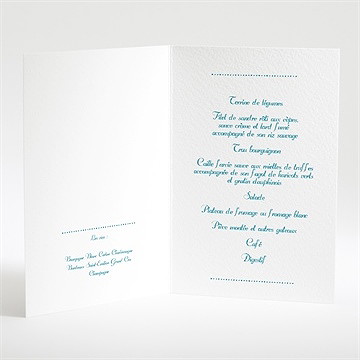 Les vins :
Bourgogne Blanc Cuvée Chardonnay
Bordeaux Saint-Emilion Grand Cru
Champagne
Terrine de légumes
Filet de sandre rôti aux cèpes
sauce crème et lard fumé
accompagné de son riz sauvage
Trou bourguignon
Caille farcie sauce aux miettes de truffes
accompagnée de son fagot de haricots verts
et gratin dauphinois
Salade
Plateau de fromage ou fromage blanc
Pièce montée et autres gateaux
Café
Digestif